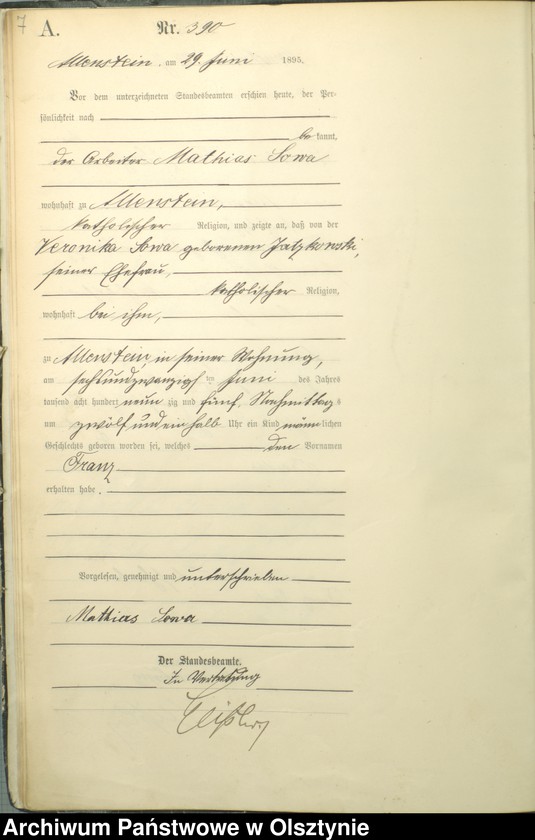 7
A.
Nr. 390
Allenstein, am 29. Juni 1895.
Vor dem unterzeichneten Standesbeamten erschien heute, der Per-
sönlichkeit nach
be kannt,
der Arbeiter Mathias Sowa
wohnhaft zu Allenstein,
katholischer Religion, und zeigte an, daß von der
Veronika Sowa geborenen Jatzkowski,
seiner Ehefrau,
katholischer Religion,
wohnhaft bei ihm,
zu Allenstein, in seiner Wohnung,
am sechsundzwanzigsten Juni des Jahres
tausend acht hundert neun zig und fünf Nachmittags
um zwölf und ein halb Uhr ein Kind männlichen
Geschlechts geboren worden sei, welches den Vornamen
Franz
erhalten habe.
Vorgelesen, genehmigt und unterschrieben
Mathias Sowa
Der Standesbeamte.
In Vertretung
Archiwum Państwowe w Olsztynie